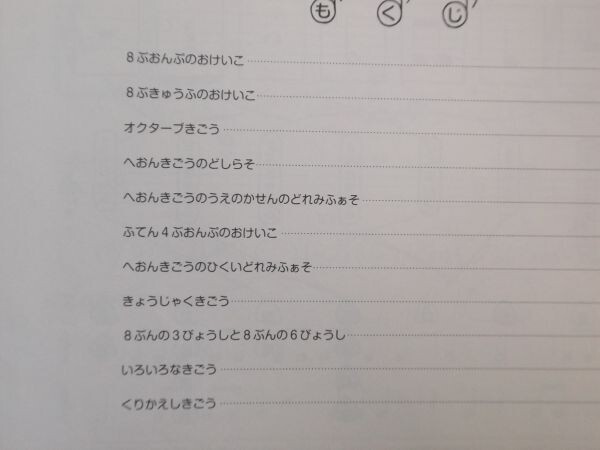 もくじ
8ぶおんぷのおけいこ
8ぶきゅうふのおけいこ
オクターブきごう
へおんきごうのどしらそ
へおんきごうのうえのかせんのどれみふぁそ
ふてん4ぶおんぷのおけいこ
へおんきごうのひくいどれみふぁそ
きょうじゃくきごう
8ぶんの3びょうしと8ぶんの6びょうし
いろいろなきごう
くりかえしきごう